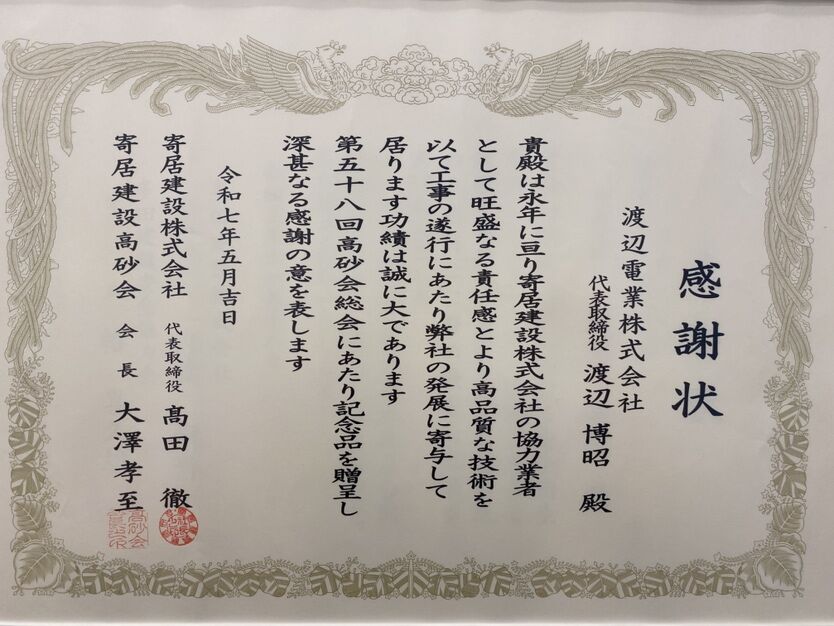 感謝状
渡辺電業株式会社
代表取締役 渡辺 博昭 殿
貴殿は永年に亘り寄居建設株式会社の協力業者
として旺盛なる責任感とより高品質な技術を
以て工事の遂行にあたり弊社の発展に寄与して
居ります功績は誠に大であります
第五十八回高砂会総会にあたり記念品を贈呈し
深甚なる感謝の意を表します
令和七年五月吉日
寄居建設株式会社 代表取締役 髙田 徹
寄居建設高砂会 会長 大澤孝至